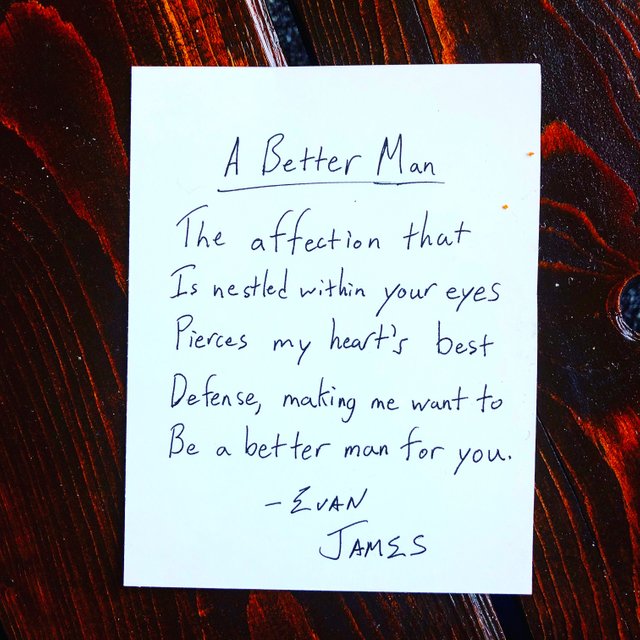 A Better Man
The affection that
Is nestled within your eyes
Pierces my heart's best
Defense, making me want to
Be a better man for you.
- Evan
James